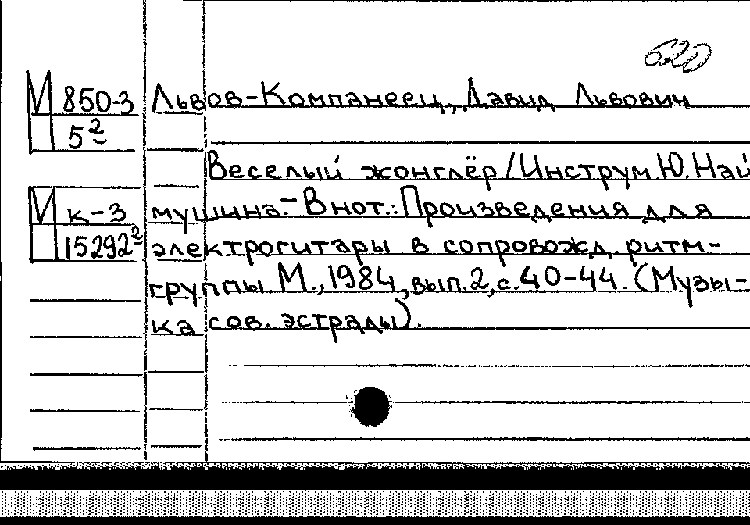 620
М 850-3 Львов-Компанеец, Давид Львович
5²
Веселый жонглёр/Инструм.Ю.Най
М к-3 мушина.-В нот.:Произведения для
15292² электрогитары в сопровожд. ритм-
группы М., 1984, вып.2, с.40-44. (Музы-
ка сов. эстрады).